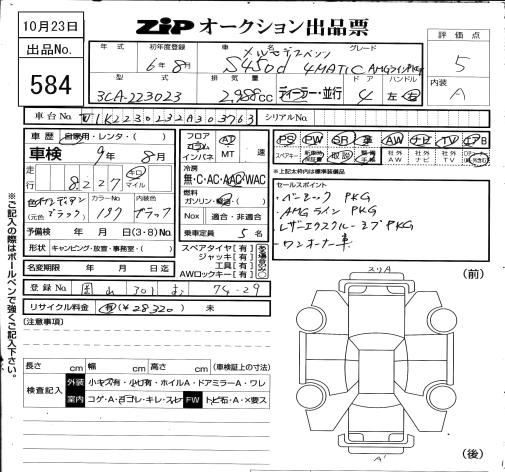 10月23日
ZIP オークション出品票
評価点
5
内装
A
出品No.
584
年式
初年度登録
6年8月
車名
メルセデスベンツ
S450d
グレード
4MATIC AMGラインPKG
型式
3CA-223023
排気量
2,988cc
ディーラー・並行
ドア
4
ハンドル
左・右
車台No.
W1K2230232A303763
シリアルNo.
車歴
自家用・レンタ・( )
車検
9年8月
走行
8227
キロ
マイル
色
オブシディアン
(元色)
ブラック
カラーNo.
197
内装色
ブラック
予備検
年 月 日(3・8)No.
形状
キャンピング・放宣・事務室・( )
名変期限
年 月 日迄
登録No.
岡山 301 お 74-29
リサイクル料金
有(¥28,320) 未
フロア
コラム
インパネ
AT
MT
速
冷房
無・C・AC・AAC・WAC
燃料
ガソリン・軽油・( )
Nox
適合・非適合
乗車定員
5名
スペアタイヤ[有]
ジャッキ[有]
工具[有]
AWロックキー[有]
ある場合のみ○
PS PW SR 革 AW ナビ TV エアB
スペアキー
新車時保証書
取説
整備手帳
社外AW
社外ナビ
社外TV
*上記太枠内は標準装備品
セールスポイント
・ベーシック PKG
・AMGライン PKG
・レザーエクスクルーシブ PKG
・ワンオーナー車
[注意事項]
長さ cm 幅 cm 高さ cm (車検証上の寸法)
検査記入
外装
小キズ有・小凹有・ホイルA・ドアミラーA・ワレ
室内
コゲ・A・ヨゴレ・キレ・スレ
FW
トビ石・A・X要ス
スリA
(前)
A'
(後)
※ご記入の際はボールペンで強くご記入下さい。